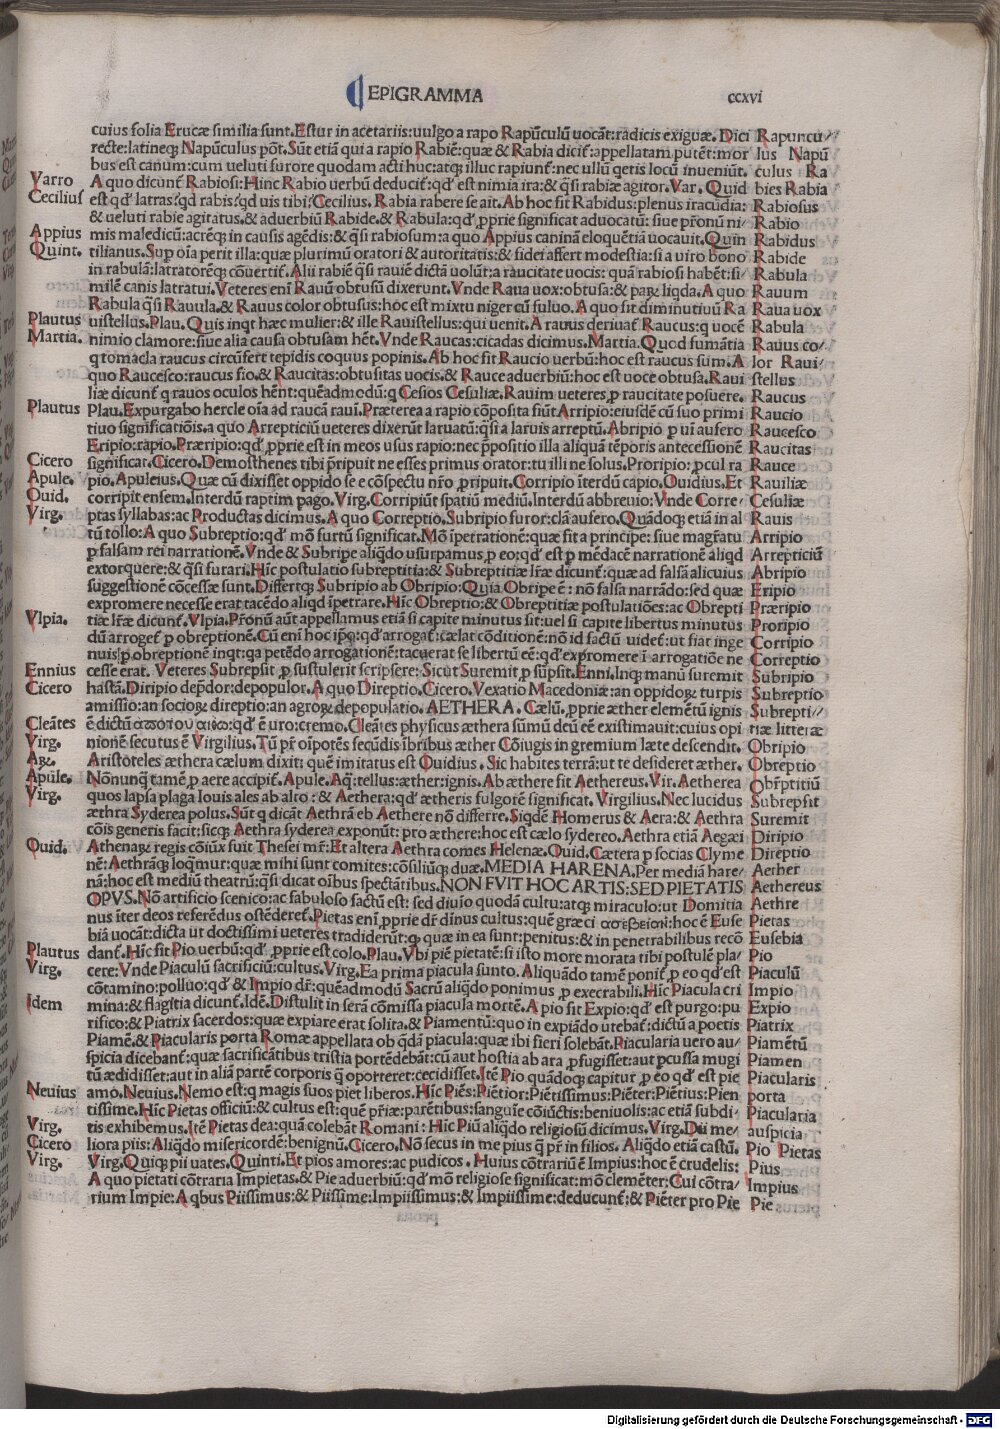 EPIGRAMMA
ccxvi
cuius folia Erucæ similia sunt.Estur in acetariis:uulgo a rapo Rapũculũ uocãt:radicis exiguæ. Dici
recte:latineq; Napũculus põt.Sũt etiã qui a rapio Rabiẽ:quæ & Rabia dicit̃:appellatam putẽt:mor
bus est canum:cum ueluti furore quodam acti huc:atq; illuc rapiunt̃:nec ullũ q̃etis locũ inueniũt.
A quo dicunt̃ Rabiosi:Hinc Rabio uerbũ deducit̃:qd' est nimia ira:& q̃si rabiæ agitor.Var.Quid
est qd' latras?qd rabis?qd uis tibi?Cecilius. Rabia rabere se ait.Ab hoc fit Rabidus:plenus iracũdia:
& ueluti rabie agitatus.& aduerbiũ Rabide.& Rabula:qd' p̱prie significat aduocatũ: siue p̃ronũ ni/
mis maledicũ:acrẽq; in causis agẽdis:& q̃si rabiosum:a quo Appius caninã eloquẽtiã uocauit.Quin
tilianus.Sup oĩa perit illa:quæ plurimũ oratori & autoritatis:& fidei affert modestia:si a uiro bono
in rabulã:latratorẽq; cõuertit̃.Alii rabiẽ q̃si rauiẽ dictã uolũt:a raucitate uocis: quã rabiosi habẽt:si/
milẽ canis latratui.Veteres enĩ Rauũ obtusũ dixerunt.Vnde Raua uox:obtusa:& paꝝ liqda.A quo
Rabula q̃si Rauula.& Rauus color obtusus:hoc est mixtu niger cũ fuluo.A quo fit diminutiuũ Ra
uistellus.Plau.Quis inqt hæc mulier:& ille Rauistellus:qui uenit.A rauus deriuat̃ Raucus:q uocẽ
nimio clamore:siue alia causa obtusam hẽt.Vnde Raucas:cicadas dicimus.Martia.Quod fumãtia
q tomacla raucus circũfert tepidis coquus popinis.Ab hoc fit Raucio uerbũ:hoc est raucus sum.A
quo Raucesco:raucus fio.& Raucitas:obtusitas uocis.& Rauce aduerbiũ:hoc est uoce obtusa.Raui
liæ dicunt̃ q rauos oculos hẽnt:quẽadmodũ:q Cesios Cesuliæ.Rauim ueteres p̱ raucitate posuere.
Plau.Expurgabo hercle oĩa ad raucã rauĩ.Præterea a rapio cõposita siũt Arripio:eiusdẽ cũ suo primi
tiuo significatiõis.a quo Arrepticiũ ueteres dixerũt laruatũ:q̃si a laruis arreptũ.Abripio p̱ uĩ aufero
Eripio:rapio.Præripio:qd' p̱prie est in meos usus rapio:nec p̃positio illa aliquã tẽporis antecessionẽ
significat.Cicero.Demosthenes tibi p̃ripuit ne esses primus orator:tu illi ne solus.Proripio:p̱cul ra
pio.Apuleius.Quæ cũ dixisset oppido se e cõspectu nr̃o p̱ripuit.Corripio ĩterdũ capio.Ouidius.Et
corripit ensem.Interdũ raptim p̱ago.Virg.Corripiũt spatiũ mediũ.Interdũ abbreuio:Vnde Corre/
ptas syllabas:ac Productas dicimus.A quo Correptio.Subripio furor:clã aufero.Quãdoq; etiã in al
tũ tollo:A quo Subreptio:qd' mõ furtũ significat.Mõ ĩpetrationẽ:quæ fit a principe:siue mag̃ratu
p̱ falsam rei narrationẽ.Vnde & Subripe aliq̃do usurpamus p̱ eo:qd' est p̱ mẽdacẽ narrationẽ aliqd
extorquere:& q̃si furari.Hĩc postulatio subreptitia:& Subreptitiæ lr̃æ dicunt̃:quæ ad falsã alicuius
suggestionẽ cõcessæ sunt.Differtq; Subripio ab Obripio:Quia Obripe ẽ: nõ falsa narrãdo:sed quæ
expromere necesse erat tacẽdo aliqd ĩpetrare.Hĩc Obreptio:& Obreptitiæ postulatiões:ac Obrepti
tiæ lr̃æ dicunt̃.Vlpia.P̃ronũ aũt appellamus etiã si capite minutus sit:uel si capite libertus minutus
dũ arroget̃ p̱ obreptionẽ.Cũ enĩ hoc ip̃q:qd' arrogat̃:cælat cõditionẽ:nõ id factũ uidet̃:ut fiat inge
nuis p̱ obreptionẽ inqt:qa petẽdo arrogationẽ:tacuerat se libertũ eẽ:qd' expromere ĩ arrogatiõe ne
cesse erat. Veteres Subrepsit p̱ sustulerit scripsere:Sicut Suremit p̱ sũpsit.Enni.Inq; manũ suremit
hastã.Diripio dep̃dor:depopulor.A quo Direptio.Cicero.Vexatio Macedoniæ:an oppidoꝝ turpis
amissio:an socioꝝ direptio:an agroꝝ depopulatio.AETHERA.Cælũ.p̱prie æther elemẽtũ ignis
ẽ dictũ :qd' ẽ uro:cremo.Cleãtes physicus æthera sũmũ deũ eẽ existimauit:cuius opi
nionẽ secutus ẽ Virgilius.Tũ pr̃ oĩpotẽs secũdis ĩbribus æther Cõiugis in gremium læte descendit.
Aristoteles æthera cælum dixit: quẽ imitatus est Ouidius. Sic habites terrã:ut te desideret æther.
Nõnunq̃ tamẽ p̱ aere accipit̃.Apule.Aq̃:tellus:æther:ignis.Ab æthere fit Aethereus.Vir.Aetherea
quos lapsa plaga Iouis ales ab alto: & Aethera:qd' ætheris fulgorẽ significat.Virgilius.Nec lucidus
æthra Syderea polus.Sũt q dicãt Aethrã eb Aethere nõ differre.Siqdẽ Homerus & Aera:& Aethra
cõis generis facit:sicq; Aethra syderea exponũt: pro æthere:hoc est cælo sydereo.Aethra etiã Aegæi
Athenaꝝ regis cõiũx fuit Thesei mr̃:Et altera Aethra comes Helenæ.Ouid.Cætera p̱ socias Clyme
nẽ:Aethrãq; loq̃mur:quæ mihi sunt comites:cõsiliũq; duæ.MEDIA HARENA.Per mediã hare/
nã:hoc est mediũ theatrũ:q̃si dicat oĩbus spectãtibus.NON FVIT HOC ARTIS:SED PIETATIS
OPVS.Nõ artificio scenico:ac fabuloso factũ est: sed diuĩo quodã cultu:atq; miraculo:ut Domitia
nus ĩter deos referẽdus ostẽderet̃.Pietas enĩ p̱prie dr̃ dĩnus cultus:quẽ græci :hoc ẽ Euse
biã uocãt:dicta ut doctissimi ueteres tradiderũt:q quæ in ea sunt:penitus:& in penetrabilibus recõ
dant̃.Hĩc fit Pio uerbũ:qd' p̱prie est colo.Plau.Vbi piẽ pietatẽ:si isto more morata tibi postulẽ pla/
cere:Vnde Piaculũ sacrificiũ:cultus.Virg.Ea prima piacula sunto.Aliquãdo tamẽ ponit̃ p̱ eo qd est
cõtamino:polluo:qd' & Impio dr̃:quẽadmodũ Sacrũ aliq̃do ponimus p̱ execrabili.Hĩc Piacula cri
mina:& flagitia dicunt̃.Idẽ.Distulit in serã cõmissa piacula mortẽ.A pio fit Expio:qd' est purgo:pu
rifico:& Piatrix sacerdos:quæ expiare erat solita.& Piamentũ:quo in expiãdo utebat̃:dictũ a poetis
Piamẽ:& Piacularis porta Romæ appellata ob q̃dã piacula:quæ ibi fieri solebãt.Piacularia uero au/
spicia dicebant̃:quæ sacrificãtibus tristia portẽdebãt:cũ aut hostia ab ara p̱fugisset:aut p̱cussa mugi
tũ ædidisset:aut in aliã partẽ corporis q̃ oporteret:cecidisset.Itẽ Pio quãdoq; capitur p̱ eo qd' est pie
amo.Neuius.Nemo est:q magis suos piet liberos.Hĩc Piẽs:Piẽtior:Piẽtissimus:Piẽter:Piẽtius:Pien
tissime.Hĩc Pietas officiũ:& cultus est:quẽ p̃riæ:parẽtibus:sanguĩe cõiũctis:beniuolis:ac etiã subdi/
tis exhibemus.Itẽ Pietas dea:quã colebãt Romani: Hĩc Piũ aliq̃do religiosũ dicimus.Virg.Dii me/
liora piis:Aliq̃do misericordẽ:benignũ.Cicero.Nõ secus in me pius q̃ pr̃ in filios.Aliq̃do etiã castũ.
Virg.Quiq; pii uates.Quinti.Et pios amores:ac pudicos. Huius cõtrariũ ẽ Impius:hoc ẽ crudelis:
A quo pietati cõtraria Impietas.& Pie aduerbiũ:qd' mõ religiose significat:mõ clemẽter:Cui cõtra/
rium Impie:A qbus Piissimus:& Piissime:Impiissimus:& Impiissime:deducunt̃:& Piẽter pro Pie
Varro
Cecilius
Appius
Quint.
Plautus
Martia.
Plautus
Cicero
Apule.
Ouid.
Virg.
Vlpia.
Ennius
Cicero
Cleãtes
Virg.
Aꝝ.
Apule.
Virg.
Ouid.
Plautus
Virg.
Idem
Neuius
Virg.
Cicero
Virg.
Rapuncu//
lus Napũ
culus Ra
bies Rabia
Rabiosus
Rabio
Rabidus
Rabide
Rabula
Rauum
Raua uox
Rabula
Rauus co/
lor Raui/
stellus
Raucus
Raucio
Raucesco
Raucitas
Rauce
Rauiliæ
Cesuliæ
Rauis
Arripio
Arrepticiũ
Abripio
Eripio
Præripio
Proripio
Corripio
Correptio
Subripio
Subreptio
Subrepti//
tiæ litteræ
Obripio
Obreptio
Obr̃ptitiũ
Subrepsit
Suremit
Diripio
Direptio
Aether
Aethereus
Aethre
Pietas
Eusebia
Pio
Piaculũ
Impio
Expio
Piatrix
Piamẽtũ
Piamen
Piacularis
porta
Piacularia
auspicia
Pio Pietas
Pius
Impius
Pie
Digitalisierung gefördert durch die Deutsche Forschungsgemeinschaft - DFG